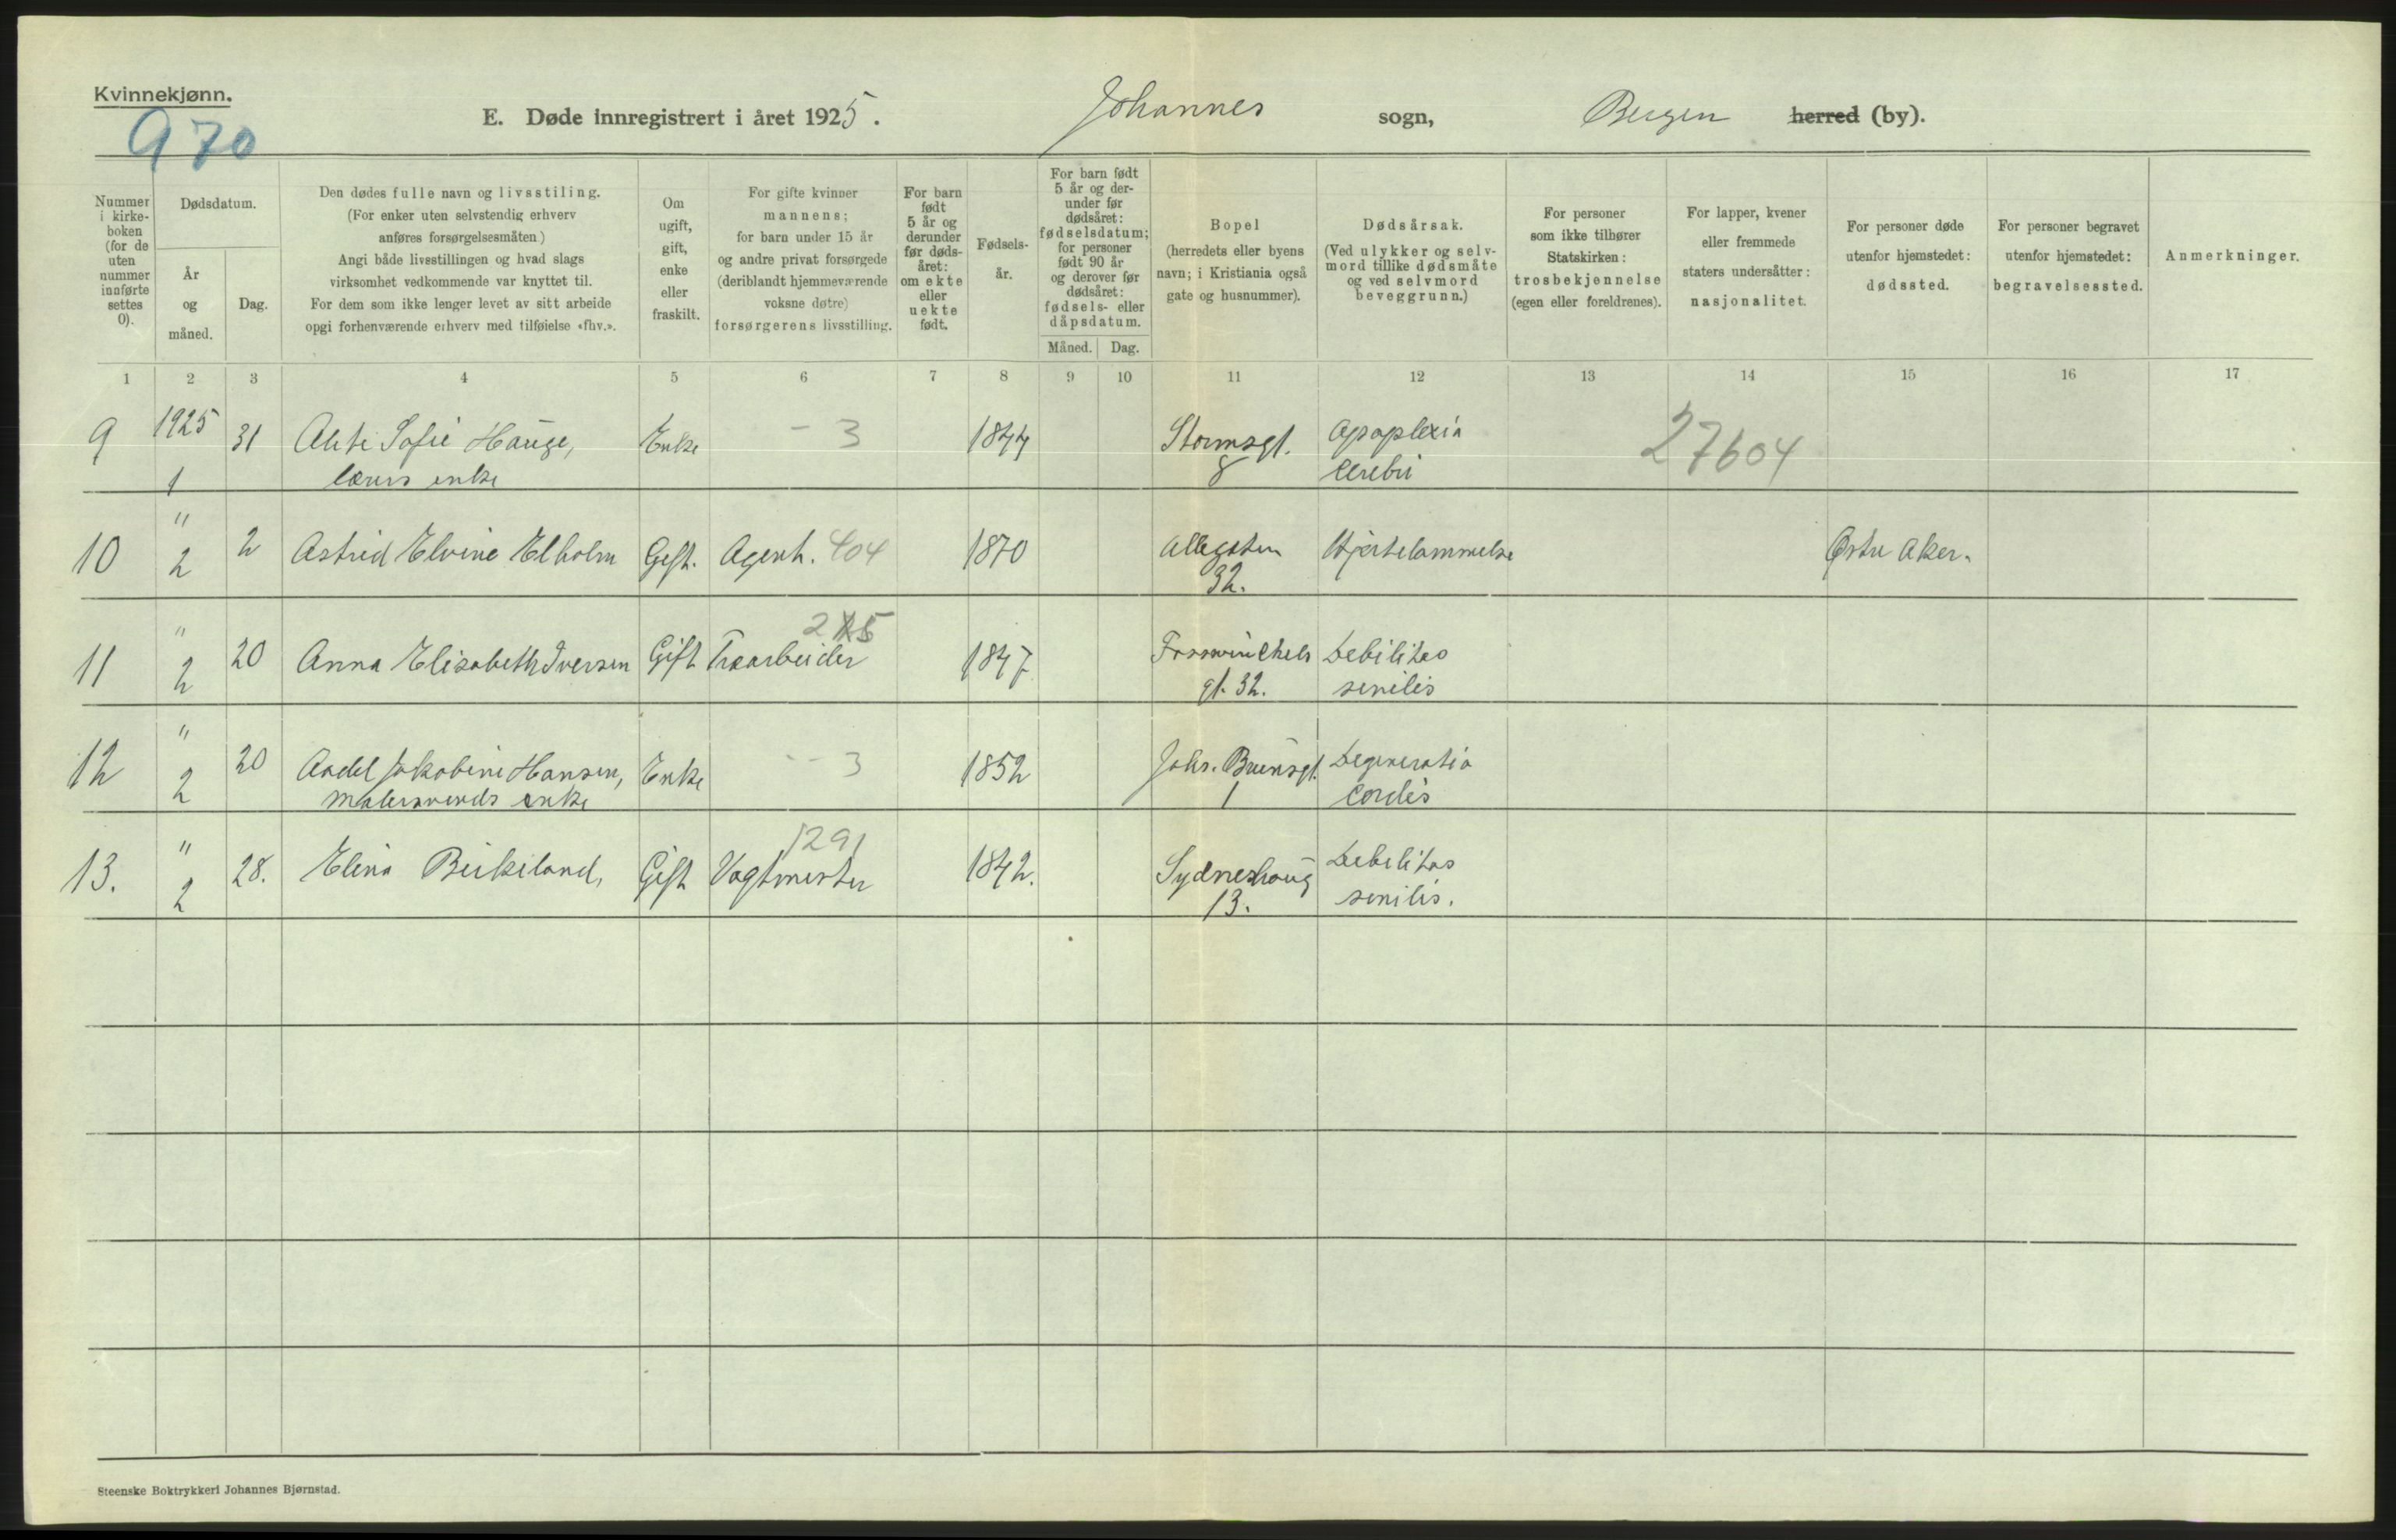 Kvinnekjønn.
970
E. Døde innregistrert i året 1925. Johannes sogn, Bergen herred (by).
Nummer i kirke-boken (for de uten nummer innførte settes 0).
Dødsdatum.
År og måned.
Dag.
Den dødes fulle navn og livsstiling.
(For enker uten selvstendig erhverv
anføres forsørgelsesmåten)
Angi både livsstillingen og hvad slags
virksomhet vedkommende var knyttet til.
For dem som ikke lenger levet av sitt arbeide
opgi forhenværende erhverv med tilføielse «fhv.».
Om
ugift,
gift,
enke
eller
fraskilt.
For gifte kvinner
mannens;
for barn under 15 år
og andre privat forsørgede
(deriblandt hjemmeværende
voksne døtre)
forsørgerens livsstilling.
For barn
født
5 år og
derunder
før døds-
året:
om ekte
eller
uekte
født.
Fødsels-
år.
For barn født
5 år og der-
under før
dødsåret:
fødselsdatum;
for personer
født 90 år
og derover før
dødsåret:
fødsels- eller
dåpsdatum.
Måned. Dag.
Bopel
(herredets eller byens
navn; i Kristiania også
gate og husnummer).
Dødsårsak.
(Ved ulykker og selv-
mord tillike dødsmåte
og ved selvmord
beveggrunn.)
For personer
som ikke tilhører
Statskirken:
trosbekjennelse
(egen eller foreldrenes).
For lapper, kvener
eller fremmede
staters undersåtter:
nasjonalitet.
For personer døde
utenfor hjemstedet:
dødssted.
For personer begravet
utenfor hjemstedet:
begravelsessted.
Anmerkninger.
1 2 3 4 5 6 7 8 9 10 11 12 13 14 15 16 17
9 1925 31 Sofie Hauge, Enke - 3 1844 Stormsgt. Apoplexia 27604
1 lærers enke 8 cerebri
10 " 2 2 Astrid Elvine Elholm Gift. Agent. 404 1870 Allegaten Hjertelammelse Østre Aker.
32.
11 " 2 20 Anna Elisabeth Iversen Gift Træarbeider 1847 Fosswinckels Debilitas
gt. 32. senilis
12 " 2 20 Jakobine Hansen, Enke - 3 1852 Johs. Brunsgt. Degeneratio
malersvends enke 1 cordis
1291
13. " 2 28. Elina Birkeland, Gift Vagtmester 1842. Sydneshaug Debilitas
13. senilis.
Steenske Boktrykkeri Johannes Bjørnstad.